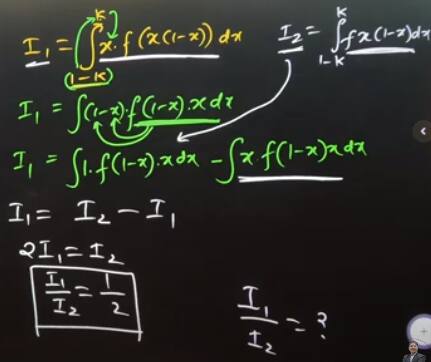 I₁ = ∫_{1-k}^{k} x·f(x(1-x)) dx
I₂ = ∫_{1-k}^{k} f x(1-x) dx
I₁ = ∫(1-x)·f(1-x)·x dx
I₁ = ∫1·f(1-x)·x dx - ∫x·f(1-x)x dx
I₁ = I₂ - I₁
2I₁ = I₂
I₁/I₂ = 1/2
I₁/I₂ = ?